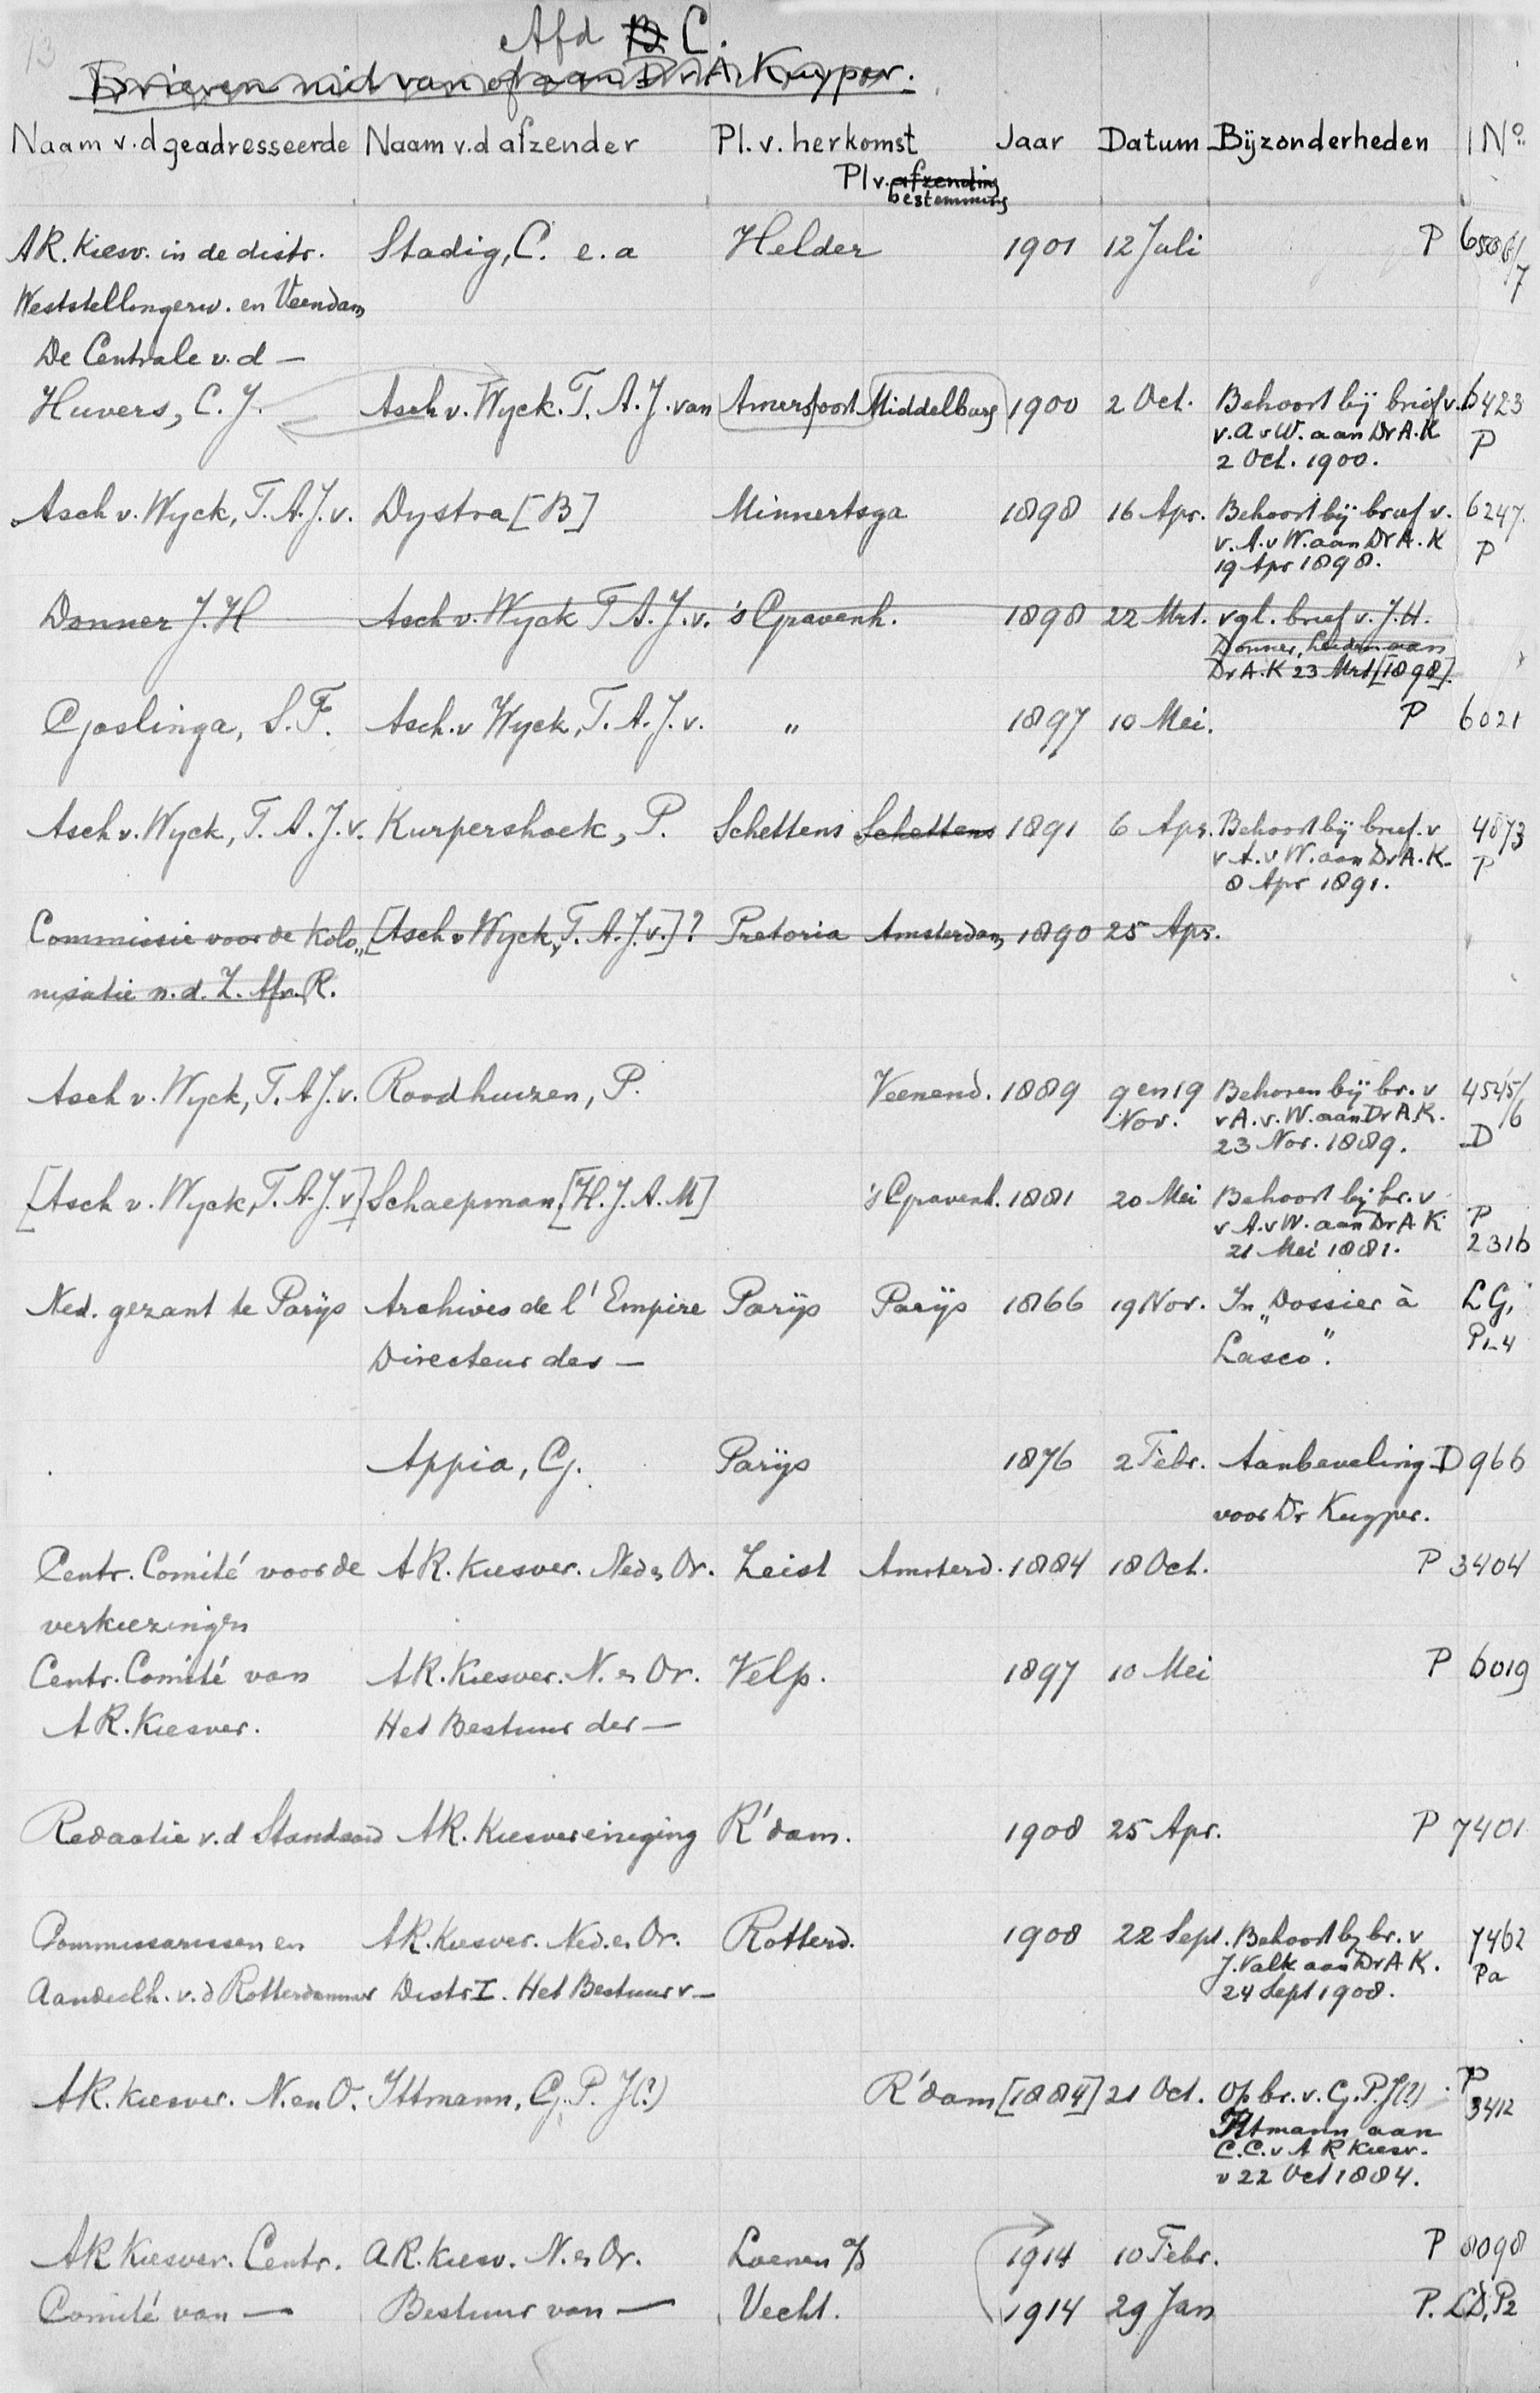 13
Afd B C.
Brieven niet van of aan Dr A. Kuyper.
Naam v.d geadresseerde Naam v.d afzender Pl. v. herkomst Jaar Datum Bijzonderheden No
Pl v. afzending
bestemming
AR. Kiesv. in de distr. Stadig, C. e. a Helder 1901 12 Juli P 6506/7
Weststellingerw. en Veendam
De Centrale v. d —
Huvers, C. J. Asch v. Wyck. T. A. J. van Amersfoort Middelburg 1900 2 Oct. Behoort bij brief v. 6423
v. A v W. aan Dr A. K P
2 Oct. 1900.
Asch v. Wyck, T. A. J. v. Dystra [B] Minnertsga 1898 16 Apr. Behoort bij brief v. 6247.
v. A. v W. aan Dr A. K P
19 Apr 1898.
Donner J. H Asch v. Wyck T A. J. v. 's Gravenh. 1898 22 Mrt. vgl. brief v. J. H.
Donner, Leiden aan
Dr A. K 23 Mrt [1898].
Goslinga, S. F. Asch. v Wyck, T. A. J. v. " 1897 10 Mei. P 6021
Asch v. Wyck, T. A. J. v. Kurpershoek, P. Schettens Schettens 1891 6 Apr. Behoort bij brief. v 4873
v A. v W. aan Dr A. K. P
8 Apr 1891.
Commissie voor de Kolo„ [Asch v Wyck, T. A. J. v.]? Pretoria Amsterdam 1890 25 Apr.
nisatie n. d. Z. Afr. R.
Asch v. Wyck, T. A J. v. Roodhuizen, P. Veenend. 1889 9 en 19 Behoren bij br. v 4545/6
Nov. v A. v. W. aan Dr A K. D
23 Nov. 1889.
[Asch v. Wyck, T. A. J. v] Schaepman [H. J. A. M] 's Gravenh. 1881 20 Mei Behoort bij br. v
v A. v W. aan Dr A K. P
21 Mei 1881. 2316
Ned. gezant te Parijs Archives de l'Empire Parijs Parijs 1866 19 Nov. In „Dossier à LG,
Directeur des — Lasco”. P1-4
Appia, G. Parijs 1876 2 Febr. Aanbeveling D 966
voor Dr Kuyper.
Centr. Comité voor de AR. Kiesver. Ned en Or. Zeist Amsterd. 1884 18 Oct. P 3404
verkiezingen
Centr. Comité van AR. Kiesver. N. en Or. Velp. 1897 10 Mei P 6019
AR. Kiesver. Het Bestuur der —
Redactie v. d Standaard AR. Kiesvereeniging R'dam. 1908 25 Apr. P 7401
Commissarissen en AR. Kiesver. Ned. en Or. Rotterd. 1908 22 Sept. Behoort bij br. v 7462
Aandeelh. v. d Rotterdammer Distr I. Het Bestuur v — J. Valk aan Dr A K. Pa
24 Sept 1908.
AR. Kiesver. N. en O. Ittmann, G. P. J (?) R'dam [1884] 21 Oct. Op br. v. G. P. J (?) P
Ittmann aan 3412
C. C. v A R Kiesv.
v 22 Oct 1884.
AR Kiesver. Centr. AR. Kiesv. N. en Or. Loenen a/d 1914 10 Febr. P 8098
Comité van — Bestuur van — Vecht. 1914 29 Jan P. LD, P2